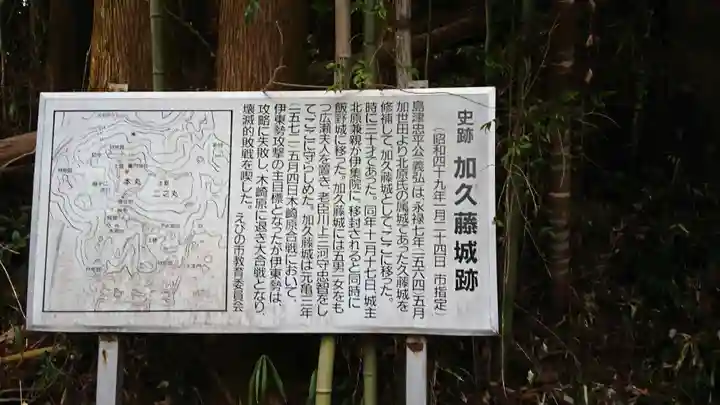 史跡 加久藤城跡
（昭和四十九年一月二十四日 市指定）
島津忠平公（義弘）は、永禄七年（一五六四）五月
加世田より北原氏の属城であった久藤城を
修補して、加久藤城としてここに移った。
時に三十才であった。同年十一月十七日、城主
北原兼親が伊集院に、移封されると同時に
飯野城に移った。加久藤城には五男一女をも
つ広瀬夫人を置き、老臣川上三河守忠智をし
てここに守らしめた。加久藤城は元亀三年
（一五七二）五月四日木崎原合戦において、
伊東勢攻撃の主目標となったが伊東勢は、
攻略に失敗し、木崎原に退き大合戦となり、
壊滅的敗戦を喫した。
えびの市教育委員会
本丸
二之丸